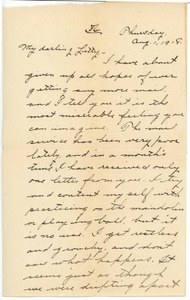 Thursday,
Aug. 1, 19
My darling Letty,-
I have about
given up all hopes of ever
getting any more mail,
and I tell you it is the
most miserable feeling you
can imagine. The mail
service has been very poor
lately and in a month's
time, I have received only
one letter from you. I try
and content my self with
practicing on the mandolin
or playing ball, but it
is no use. I get restless
and grouchy, and don't
care what happens. It
seems just as though
we were drifting apart